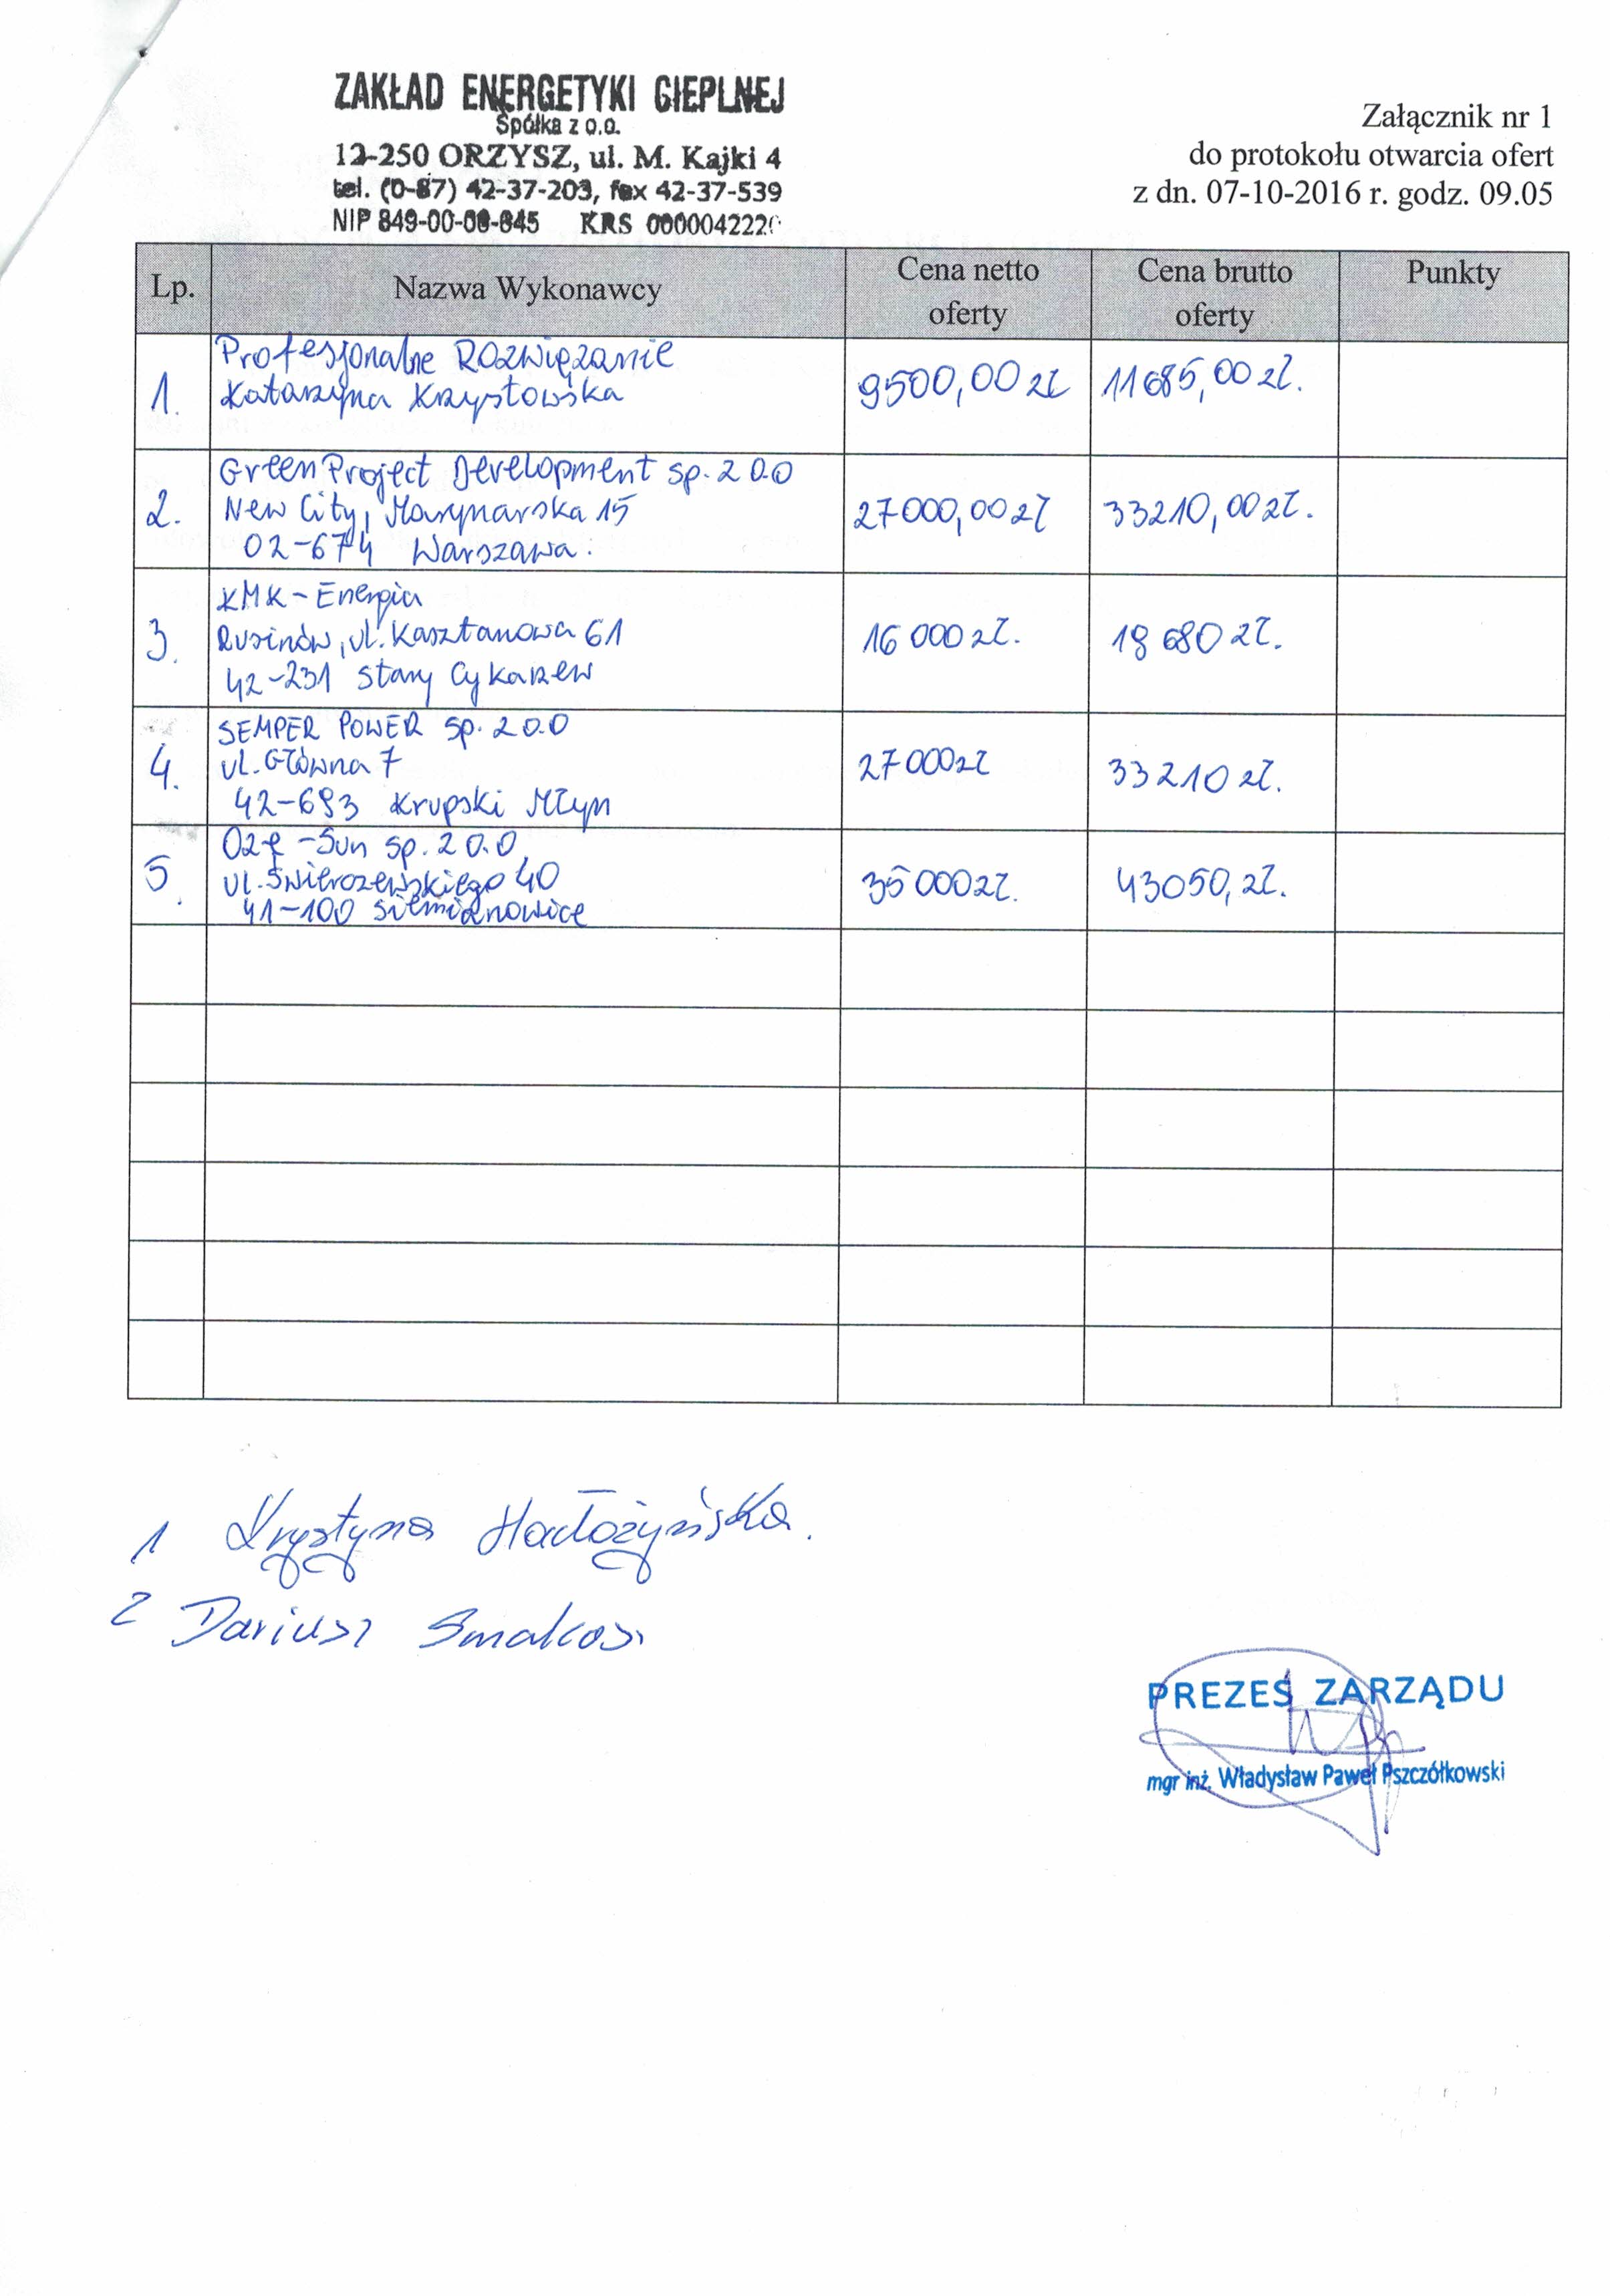 ZAKŁAD ENERGETYKI CIEPLNEJ
Spółka z o.o.
12-250 ORZYSZ, ul. M. Kajki 4
tel. (0-87) 42-37-203, fax 42-37-539
NIP 849-00-00-845 KRS 000004222
Załącznik nr 1
do protokołu otwarcia ofert
z dn. 07-10-2016 r. godz. 09.05
Lp. Nazwa Wykonawcy Cena netto oferty Cena brutto oferty Punkty
1. Profesjonalne Rozwiązanie 9500,00 zł 11685,00 zł.
Katarzyna Krzystowska
2. Green Project Development sp. z o.o 27000,00 zł 33210,00 zł.
New City, Marynarska 15
02-674 Warszawa.
3. KMK-Energia 16 000 zł. 19 680 zł.
Rusinów, ul. Kasztanowa 61
42-231 Stary Cykarzew
4. SEMPER POWER sp. z o.o 27 000 zł 33210 zł.
ul. Główna 7
42-693 Krupski Młyn
5. -Sun sp. z o.o. 35 000 zł. 43050, zł.
ul. Świerczewskiego 40
41-100 Siemianowice
1 Krystyna
2 Dariusz
PREZES ZARZĄDU
mgr inż. Władysław Paweł Pszczółkowski